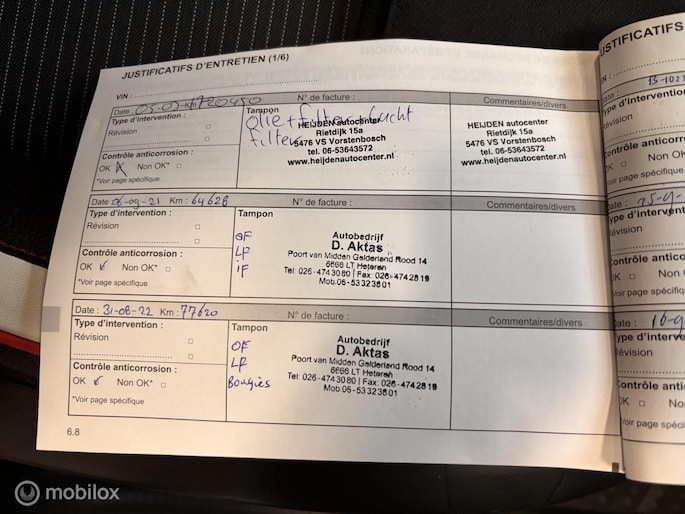 JUSTIFICATIFS D'ENTRETIEN (1/6)
VIN :
Date : Km
Tampon
N° de facture :
Commentaires/divers
Type d'intervention :
Révision
olie + filter + lucht
filter
HEIJDEN autocenter
Rietdijk 15a
5476 VS Vorstenbosch
tel. 06-53643572
www.heijdenautocenter.nl
HEIJDEN autocenter
Rietdijk 15a
5476 VS Vorstenbosch
tel. 06-53643572
www.heijdenautocenter.nl
Contrôle anticorrosion :
OK Non OK*
*Voir page spécifique
Date : 06-09-21 Km : 64628
N° de facture :
Commentaires/divers
Type d'intervention :
Révision
Tampon
OF
LF
IF
Autobedrijf
D. Aktas
Poort van Midden Gelderland Rood 14
6666 LT Heteren
Tel: 026-4743080 | Fax: 026-4742819
Mob.06-53323801
Contrôle anticorrosion :
OK Non OK*
*Voir page spécifique
Date : 31-08-22 Km : 77620
N° de facture :
Commentaires/divers
Type d'intervention :
Révision
Tampon
OF
LF
Bougies
Autobedrijf
D. Aktas
Poort van Midden Gelderland Rood 14
6666 LT Heteren
Tel: 026-4743080 | Fax: 026-4742819
Mob.06-53323801
Contrôle anticorrosion :
OK Non OK*
*Voir page spécifique
6.8
JUSTIFICATIFS
VIN :
Date :
Révision
Contrôle
OK Non
*Voir page
Révision
OK
mobilox